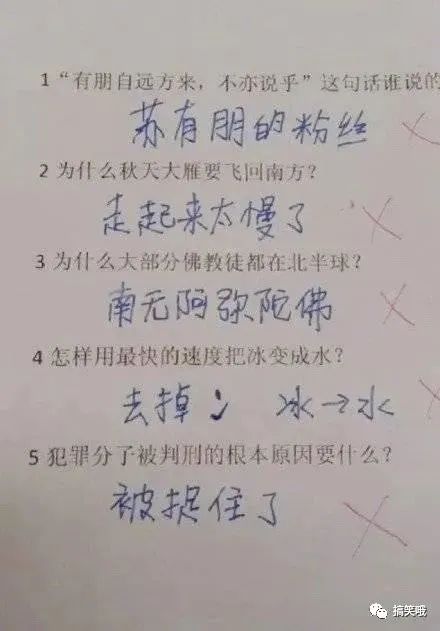 1“有朋自远方来，不亦说乎”这句话谁说的
苏有朋的粉丝
2 为什么秋天大雁要飞回南方？
走起来太慢了
3 为什么大部分佛教徒都在北半球？
南无阿弥陀佛
4 怎样用最快的速度把冰变成水？
去掉冫 冰→水
5 犯罪分子被判刑的根本原因要什么？
被捉住了
搞笑哦